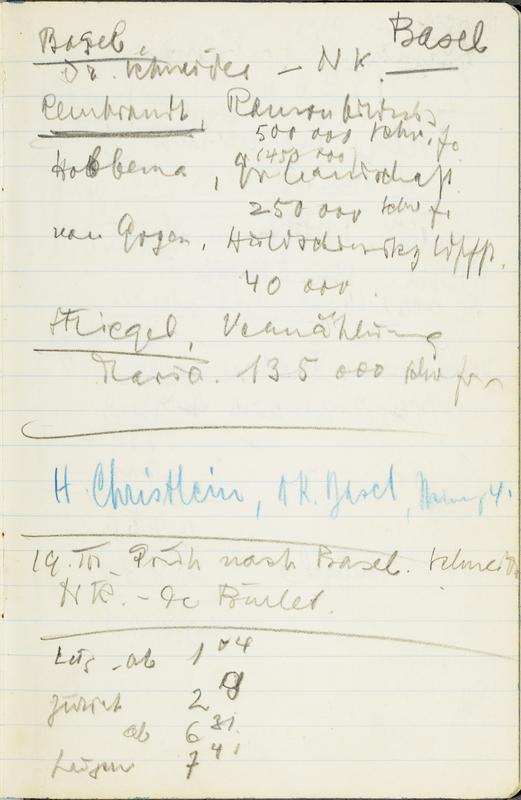 Basel,
Basel
Dr. Schneider – NK.
Rembrandt,
500 000 schw. fr.
(450 000)
Hobbema, gr. Landschaft.
250 000 schw fr.
van Goyen,
40 000.
Striegel, Vermählung
Maria. 135 000 schw fr.
H. Christlein, NK. Basel,
19. III. Früh nach Basel. Schneider
NK. –
Luz. ab 1 04
Zürich 2
ab 6 31
Luzern 7 41